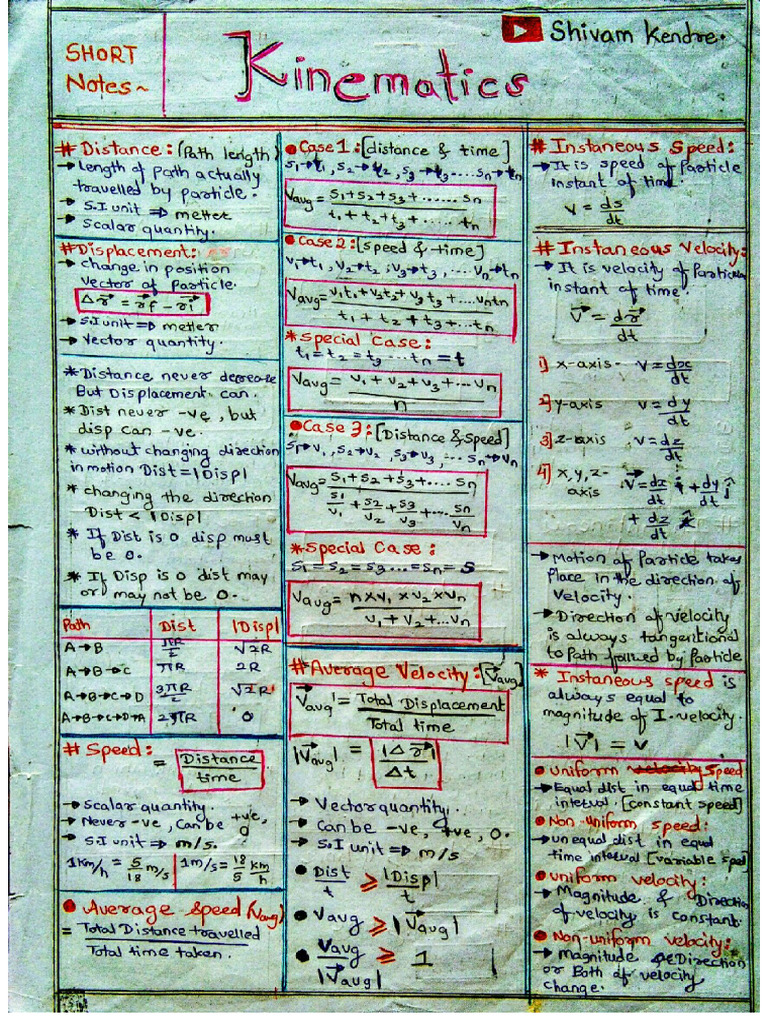 SHORT
Notes~
Kinematics
Shivam Kendre.
# Distance: (Path length)
→ Length of Path actually
travelled by particle.
→ S.I unit ⇒ metter
→ Scalar quantity.
# Displacement:
→ change in position
vector of Particle.
Δr⃗ = r⃗f - r⃗i
→ S.I unit ⇒ metter
→ Vector quantity.
* Distance never decrease
But Displacement can.
* Dist never -ve, but
disp can -ve.
* without changing direction
in motion Dist = |Displ
* changing the direction
Dist < |Displ
* If Dist is 0 disp must
be 0.
* If Disp is 0 dist may
or may not be 0.
Path Dist |Displ
A→B πR/2 √2R
A→B→C πR 2R
A→B→C→D 3πR/2 √2R
A→B→C→D→A 2πR 0
# Speed:
= Distance/time
→ Scalar quantity.
→ Never -ve, Can be +ve, 0
→ S.I unit ⇒ m/s.
1Km/h = 5/18 m/s 1m/s = 18/5 km/h
• Average Speed (Vaug)
= Total Distance travelled
Total time taken.
• Case 1: [distance & time]
S1→t1, S2→t2, S3→t3....Sn→tn
Vaug = S1+S2+S3+......Sn
t1+t2+t3+.....tn
• Case 2: [speed & time]
V1→t1, V2→t2, V3→t3, ....Vn→tn
Vaug = V1t1+V2t2+V3t3+....Vntn
t1+t2+t3+...tn
* Special Case:
t1=t2=t3....tn=t
Vaug = V1+V2+V3+...Vn
n
• Case 3: [Distance & Speed]
S1→V1, S2→V2, S3→V3, ...Sn→Vn
Vaug = S1+S2+S3+....Sn
S1/V1 + S2/V2 + S3/V3 +... Sn/Vn
* Special Case:
S1=S2=S3...=Sn=S
Vaug = n×V1×V2×Vn
V1+V2+...Vn
# Average Velocity: [V⃗aug]
V⃗aug = Total Displacement
Total time
|V⃗aug| = |Δr⃗|/Δt
→ Vector quantity.
→ Can be -ve, +ve, 0.
→ S.I unit ⇒ m/s
• Dist/t ⩾ |Displ/t
• Vaug ⩾ |V⃗aug|
• Vaug/|V⃗aug| ⩾ 1
# Instaneous Speed:
→ It is speed of Particle
instant of time.
V = ds/dt
# Instaneous Velocity:
→ It is velocity of Particle
instant of time.
V⃗ = dr⃗/dt
1) x-axis- V = dx/dt
2) y-axis V = dy/dt
3) z-axis V = dz/dt
4) x,y,z- V⃗ = dx/dt î + dy/dt ĵ
axis + dz/dt k̂
→ Motion of Particle takes
Place in the direction of
Velocity.
→ Direction of velocity
is always tangentional
to Path follwed by Particle
* Instaneous speed is
always equal to
magnitude of I.velocity.
|V⃗| = v
• Uniform velocity Speed
→ Equal dist in equal time
interval. [constant speed]
• Non-uniform speed:
→ unequal dist in equal
time interval [variable sped]
• uniform velocity:
→ Magnitude & Direction
of velocity is constant.
• Non-uniform velocity:
→ magnitude Direction
or Both of velocity
change.